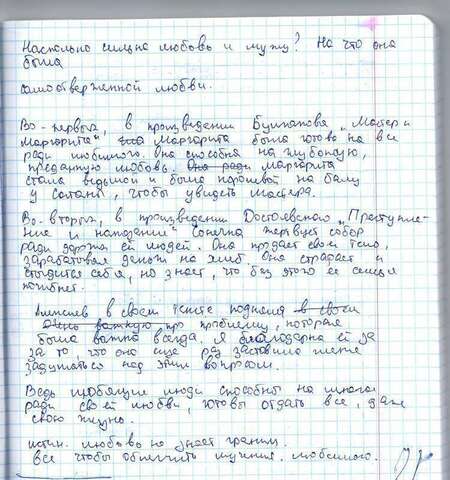 Насколько сильна любовь к мужу? На что она
была
самоотверженной любви.
Во-первых, в произведении Булгакова „Мастер и
Маргарита" Маргарита была готова на все
ради любимого. Она способна на глубокую,
преданную любовь. Она ради Маргарита
стала ведьмой и была королевой на балу
у Сатаны, чтобы увидеть Мастера.
Во-вторых, в произведении Достоевского „Преступле-
ние и наказание" Сонечка жертвует собой
ради дорогих ей людей. Она продает свое тело,
зарабатывая деньги на хлеб. Она страдает и
стыдится себя, но знает, что без этого ее семья
погибнет.
в своем тексте подняла в своем
Очень важную про проблему, которая
была важна всегда. Я благодарна ей за
за то, что она еще раз заставила меня
задуматься над этим вопросом.
Ведь любящие люди способны на многое
ради своей любви, готовы отдать все, даже
свою жизнь.
истин. любовь не знает границ
все чтобы облегчить мучения любимого.